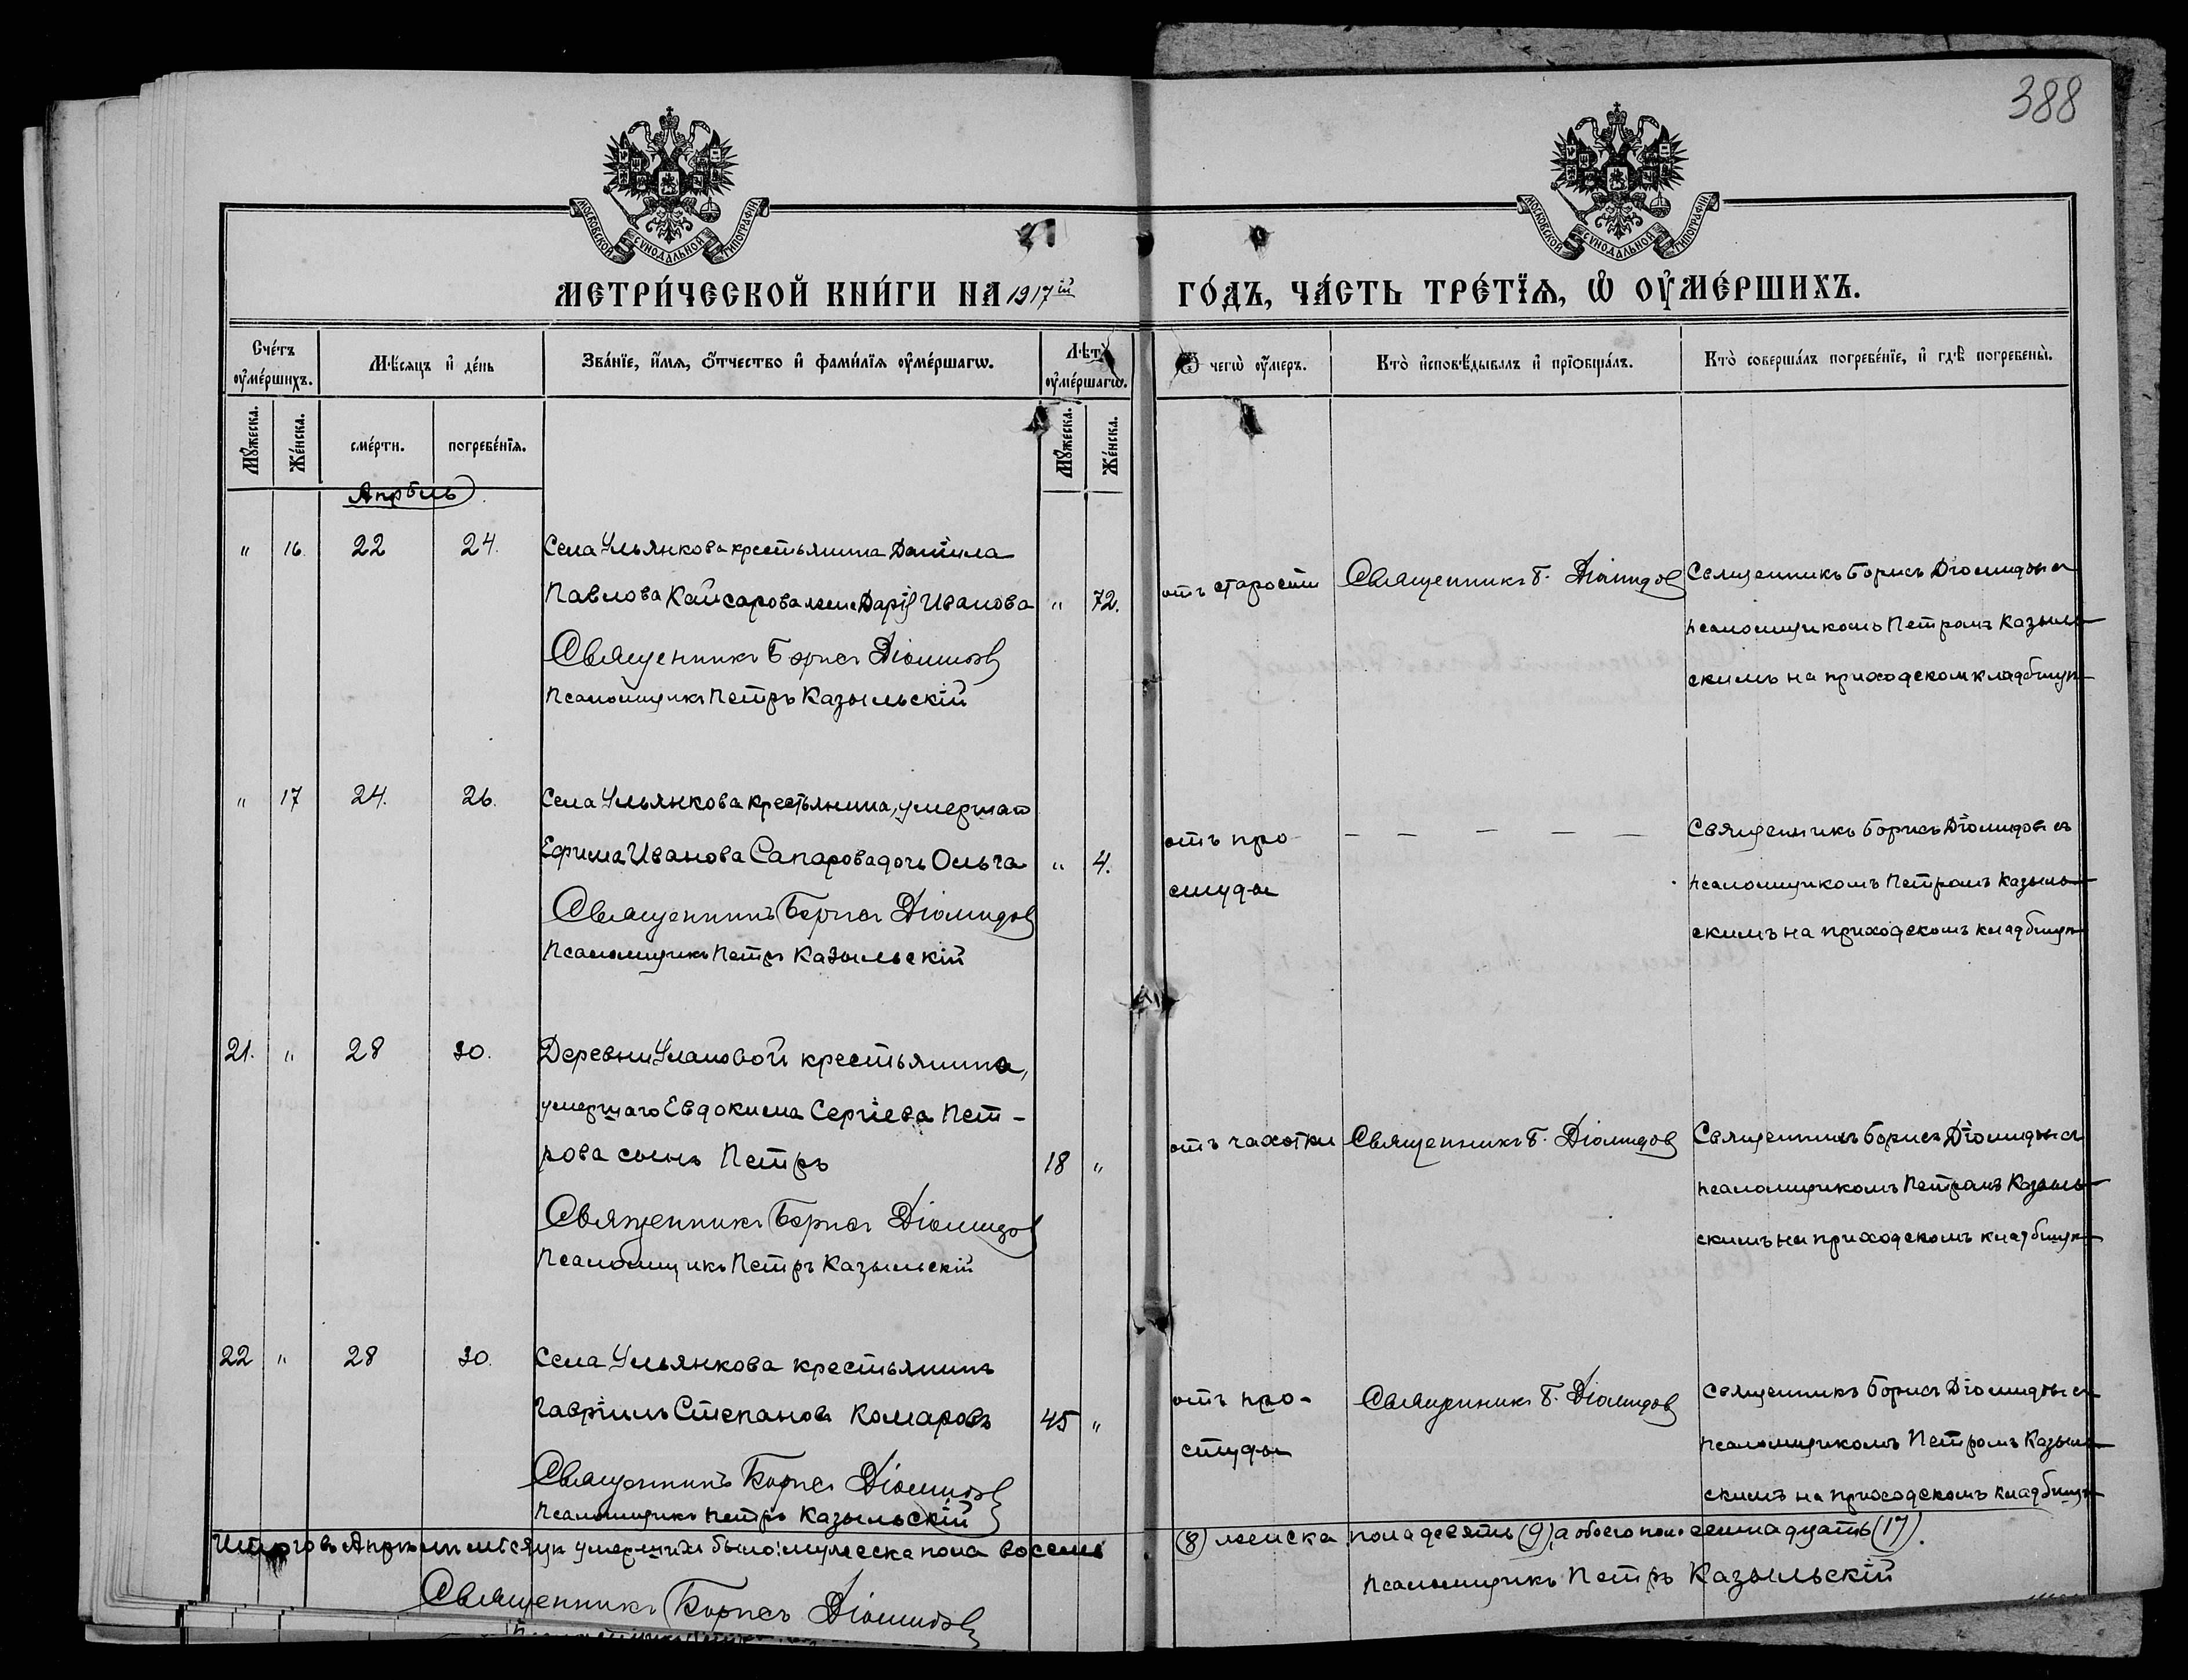 388
МОСКОВСКОЙ СѴНОДАЛЬНОЙ ТИПОГРАФІИ
МОСКОВСКОЙ СѴНОДАЛЬНОЙ ТИПОГРАФІИ
МЕТРИ́ЧЕСКОЙ КНИ́ГИ НА 1917й ГО́ДЪ, ЧА́СТЬ ТРЕ́ТЇѦ, Ѡ҆ ОУ҆МЕ́РШИХЪ.
Сче́тъ оу҆ме́ршихъ.
Мꙋ́жеска.
Же́нска.
Мѣ́сяцъ и҆ де́нь
сме́рти.
погребе́нїя.
Зва́нїе, и҆́мя, ѻ҆́тчество и҆ фами́лїя оу҆ме́ршагѡ.
Лѣ́тъ оу҆ме́ршагѡ.
Мꙋ́жеска.
Же́нска.
Ѿ чегѡ̀ оу҆́меръ.
Кто̀ и҆сповѣ́дывалъ и҆ прїѡбща́лъ.
Кто̀ соверша́лъ погребе́нїе, и҆ гдѣ̀ погребены̀.
Апрѣль
" 16. 22 24. Села Ульянкова крестьянина Данiила
Павлова Кайсарова жена Дарiя Иванова " 72.
Священникъ Борисъ Дiомидовъ
Псаломщикъ Петръ Казыльскiй
отъ старости
Священникъ Б. Дiомидовъ
Священникъ Борисъ Дiомидовъ съ
псаломщикомъ Петромъ Казыль-
скимъ на приходском кладбищѣ
" 17 24. 26. Села Ульянкова крестьянина, умершаго
Ефима Иванова Сапарова дочь Ольга " 4.
Священникъ Борисъ Дiомидовъ
Псаломщикъ Петръ Казыльскiй
отъ про
студы
— — — — —
Священникъ Борисъ Дiомидовъ съ
псаломщикомъ Петромъ Казыль-
скимъ на приходскомъ кладбищѣ
21. " 28 30. Деревни Улановой крестьянина,
умершаго Евдокима Сергiева Пет-
рова сынъ Петръ 18 "
Священникъ Борисъ Дiомидовъ
Псаломщикъ Петръ Казыльскiй
отъ чахотки
Священникъ Б. Дiомидовъ
Священникъ Борисъ Дiомидовъ съ
псаломщикомъ Петромъ Казыль-
скимъ на приходскомъ кладбищѣ
22 " 28 30. Села Ульянкова крестьянинъ
Гаврiилъ Степановъ Комаровъ 45 "
Священникъ Борисъ Дiомидовъ
Псаломщикъ Петръ Казыльскiй
отъ про-
студы
Священникъ Б. Дiомидовъ
Священникъ Борисъ Дiомидовъ съ
псаломщикомъ Петромъ Казыль-
скимъ на приходскомъ кладбищѣ
Итого въ Апрѣлѣ мѣсяцѣ умершихъ было: мужеска пола восемь (8) женска пола девять (9), а обоего пола семнадцать (17).
Священникъ Борисъ Дiомидовъ
Псаломщикъ Петръ Казыльскiй